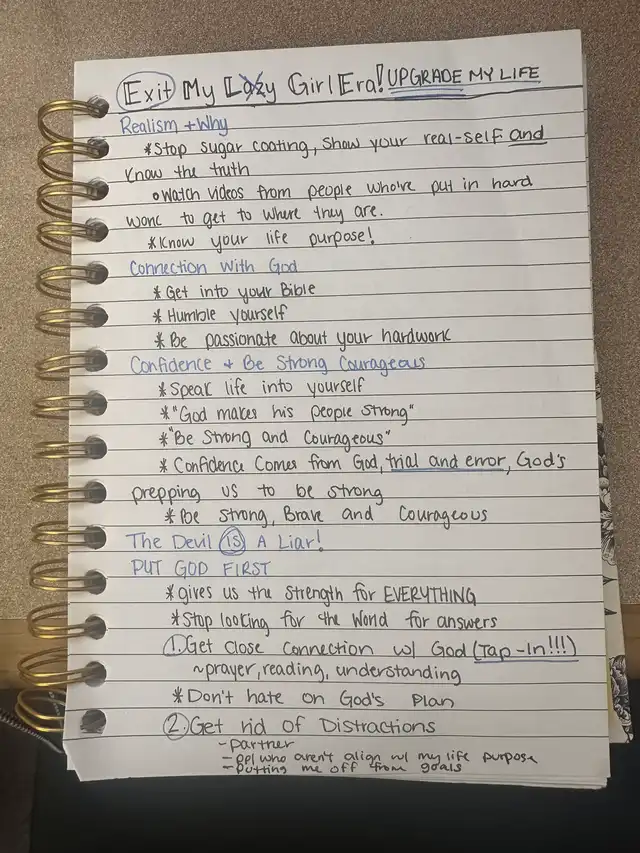 Exit My Lazy Girl Era! UPGRADE MY LIFE
Realism + Why
*Stop sugar coating, show your real-self and
know the truth
•Watch videos from people who're put in hard
work to get to where they are.
*Know your life purpose!
Connection with God
*Get into your Bible
*Humble yourself
*Be passionate about your hardwork
Confidence + Be Strong Courageous
*Speak life into yourself
*"God makes his people strong"
*"Be Strong and Courageous"
*Confidence Comes from God, trial and error, God's
prepping us to be strong
*Be strong, Brave and Courageous
The Devil is A Liar!
PUT GOD FIRST
*gives us the strength for EVERYTHING
*Stop looking for the World for answers
1. Get close connection w/ God (Tap-In!!!)
~prayer, reading, understanding
*Don't hate on God's Plan
2. Get rid of Distractions
-partner
-ppl who aren't align w/ my life purpose
-putting me off from goals